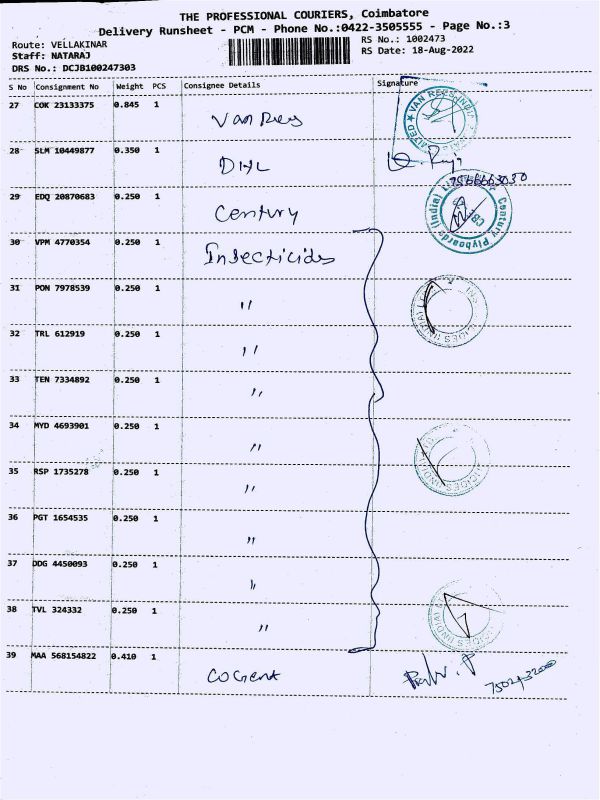 THE PROFESSIONAL COURIERS, Coimbatore
Delivery Runsheet - PCM - Phone No.:0422-3505555 - Page No.:3
Route: VELLAKINAR
RS No.: 1002473
Staff: NATARAJ
RS Date: 18-Aug-2022
DRS No.: DCJB100247303
S No Consignment No Weight PCS Consignee Details Signature
27 COK 23133375 0.845 1 Van Rees
VAN REES INDIA
28 SLM 10449877 0.350 1 DHL
29 EDQ 20870683 0.250 1 Century
Century Plyboards (India)
30 VPM 4770354 0.250 1 Insecticides
31 PON 7978539 0.250 1 "
32 TRL 612919 0.250 1 "
33 TEN 7334892 0.250 1 "
34 MYD 4693901 0.250 1 "
35 RSP 1735278 0.250 1 "
36 PGT 1654535 0.250 1 "
37 DDG 4450093 0.250 1 "
38 TVL 324332 0.250 1 "
39 MAA 568154822 0.410 1 COGENT